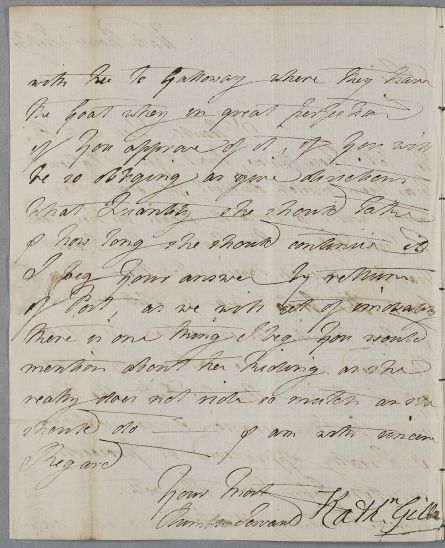 with her to Galloway where they have
the Goat whey in great perfection
if you approve of it, if you will
be so obliging as give directions
what Quantity she should take
& how long she should continue it
I beg your answer by return
of Post, as we will set of imediately
there is one thing I beg you would
mention about her Riding as she
really does not ride so much as she
should do — I am with sincere
Regard
Your most
Humble Servant Kath.n Gillon